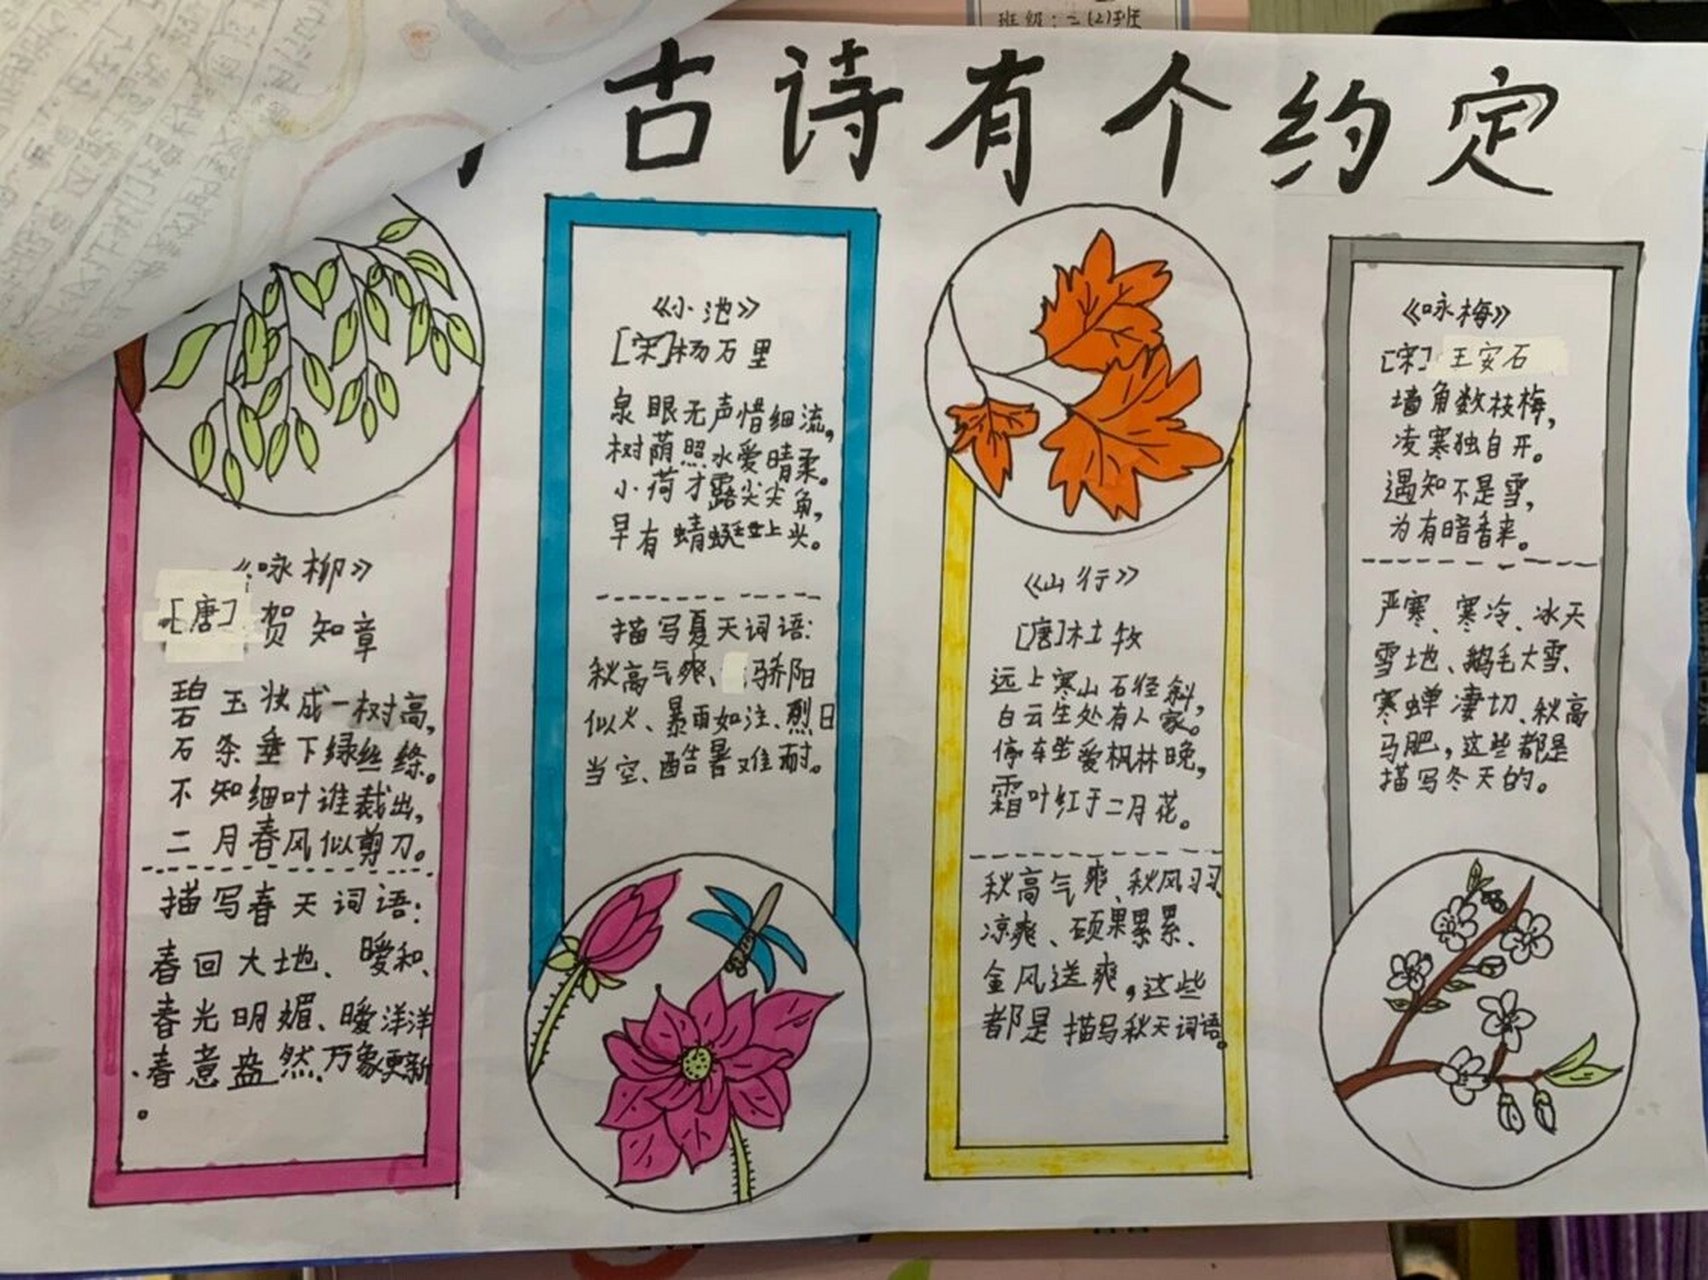 古诗有个约定
班级:二(2)班
《咏柳》
[唐] 贺知章
碧玉状成一树高,
石条垂下绿丝绦。
不知细叶谁裁出,
二月春风似剪刀。
描写春天词语:
春回大地、暖和、
春光明媚、暖洋洋
春意盎然.万象更新
。
《小池》
[宋]杨万里
泉眼无声惜细流,
树荫照水爱晴柔。
小荷才露尖尖角,
早有蜻蜓立上头。
描写夏天词语:
秋高气爽、骄阳
似火、暴雨如注、烈日
当空、酷暑难耐。
《山行》
[唐]杜牧
远上寒山石径斜,
白云生处有人家。
停车坐爱枫林晚,
霜叶红于二月花。
秋高气爽、秋风习习
凉爽、硕果累累、
金风送爽,这些
都是描写秋天词语。
《咏梅》
[宋] 王安石
墙角数枝梅,
凌寒独自开。
遥知不是雪,
为有暗香来。
严寒、寒冷、冰天
雪地、鹅毛大雪、
寒蝉凄切、秋高
马肥,这些都是
描写冬天的。